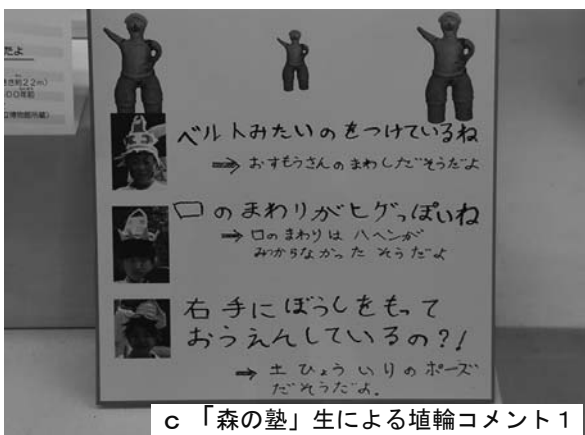 たよ
さ約22m)
00年前
立博物館所蔵)
ベルトみたいのをつけているね
⇒ おすもうさんのまわしだそうだよ
口のまわりがヒゲっぽいね
⇒ 口のまわりは ハヘンが
みからなかった そうだよ
右手にぼうしをもって
おうえんしているの?!
⇒ 土ひょういりのポーズ
だそうだよ.
c 「森の塾」生による埴輪コメント1